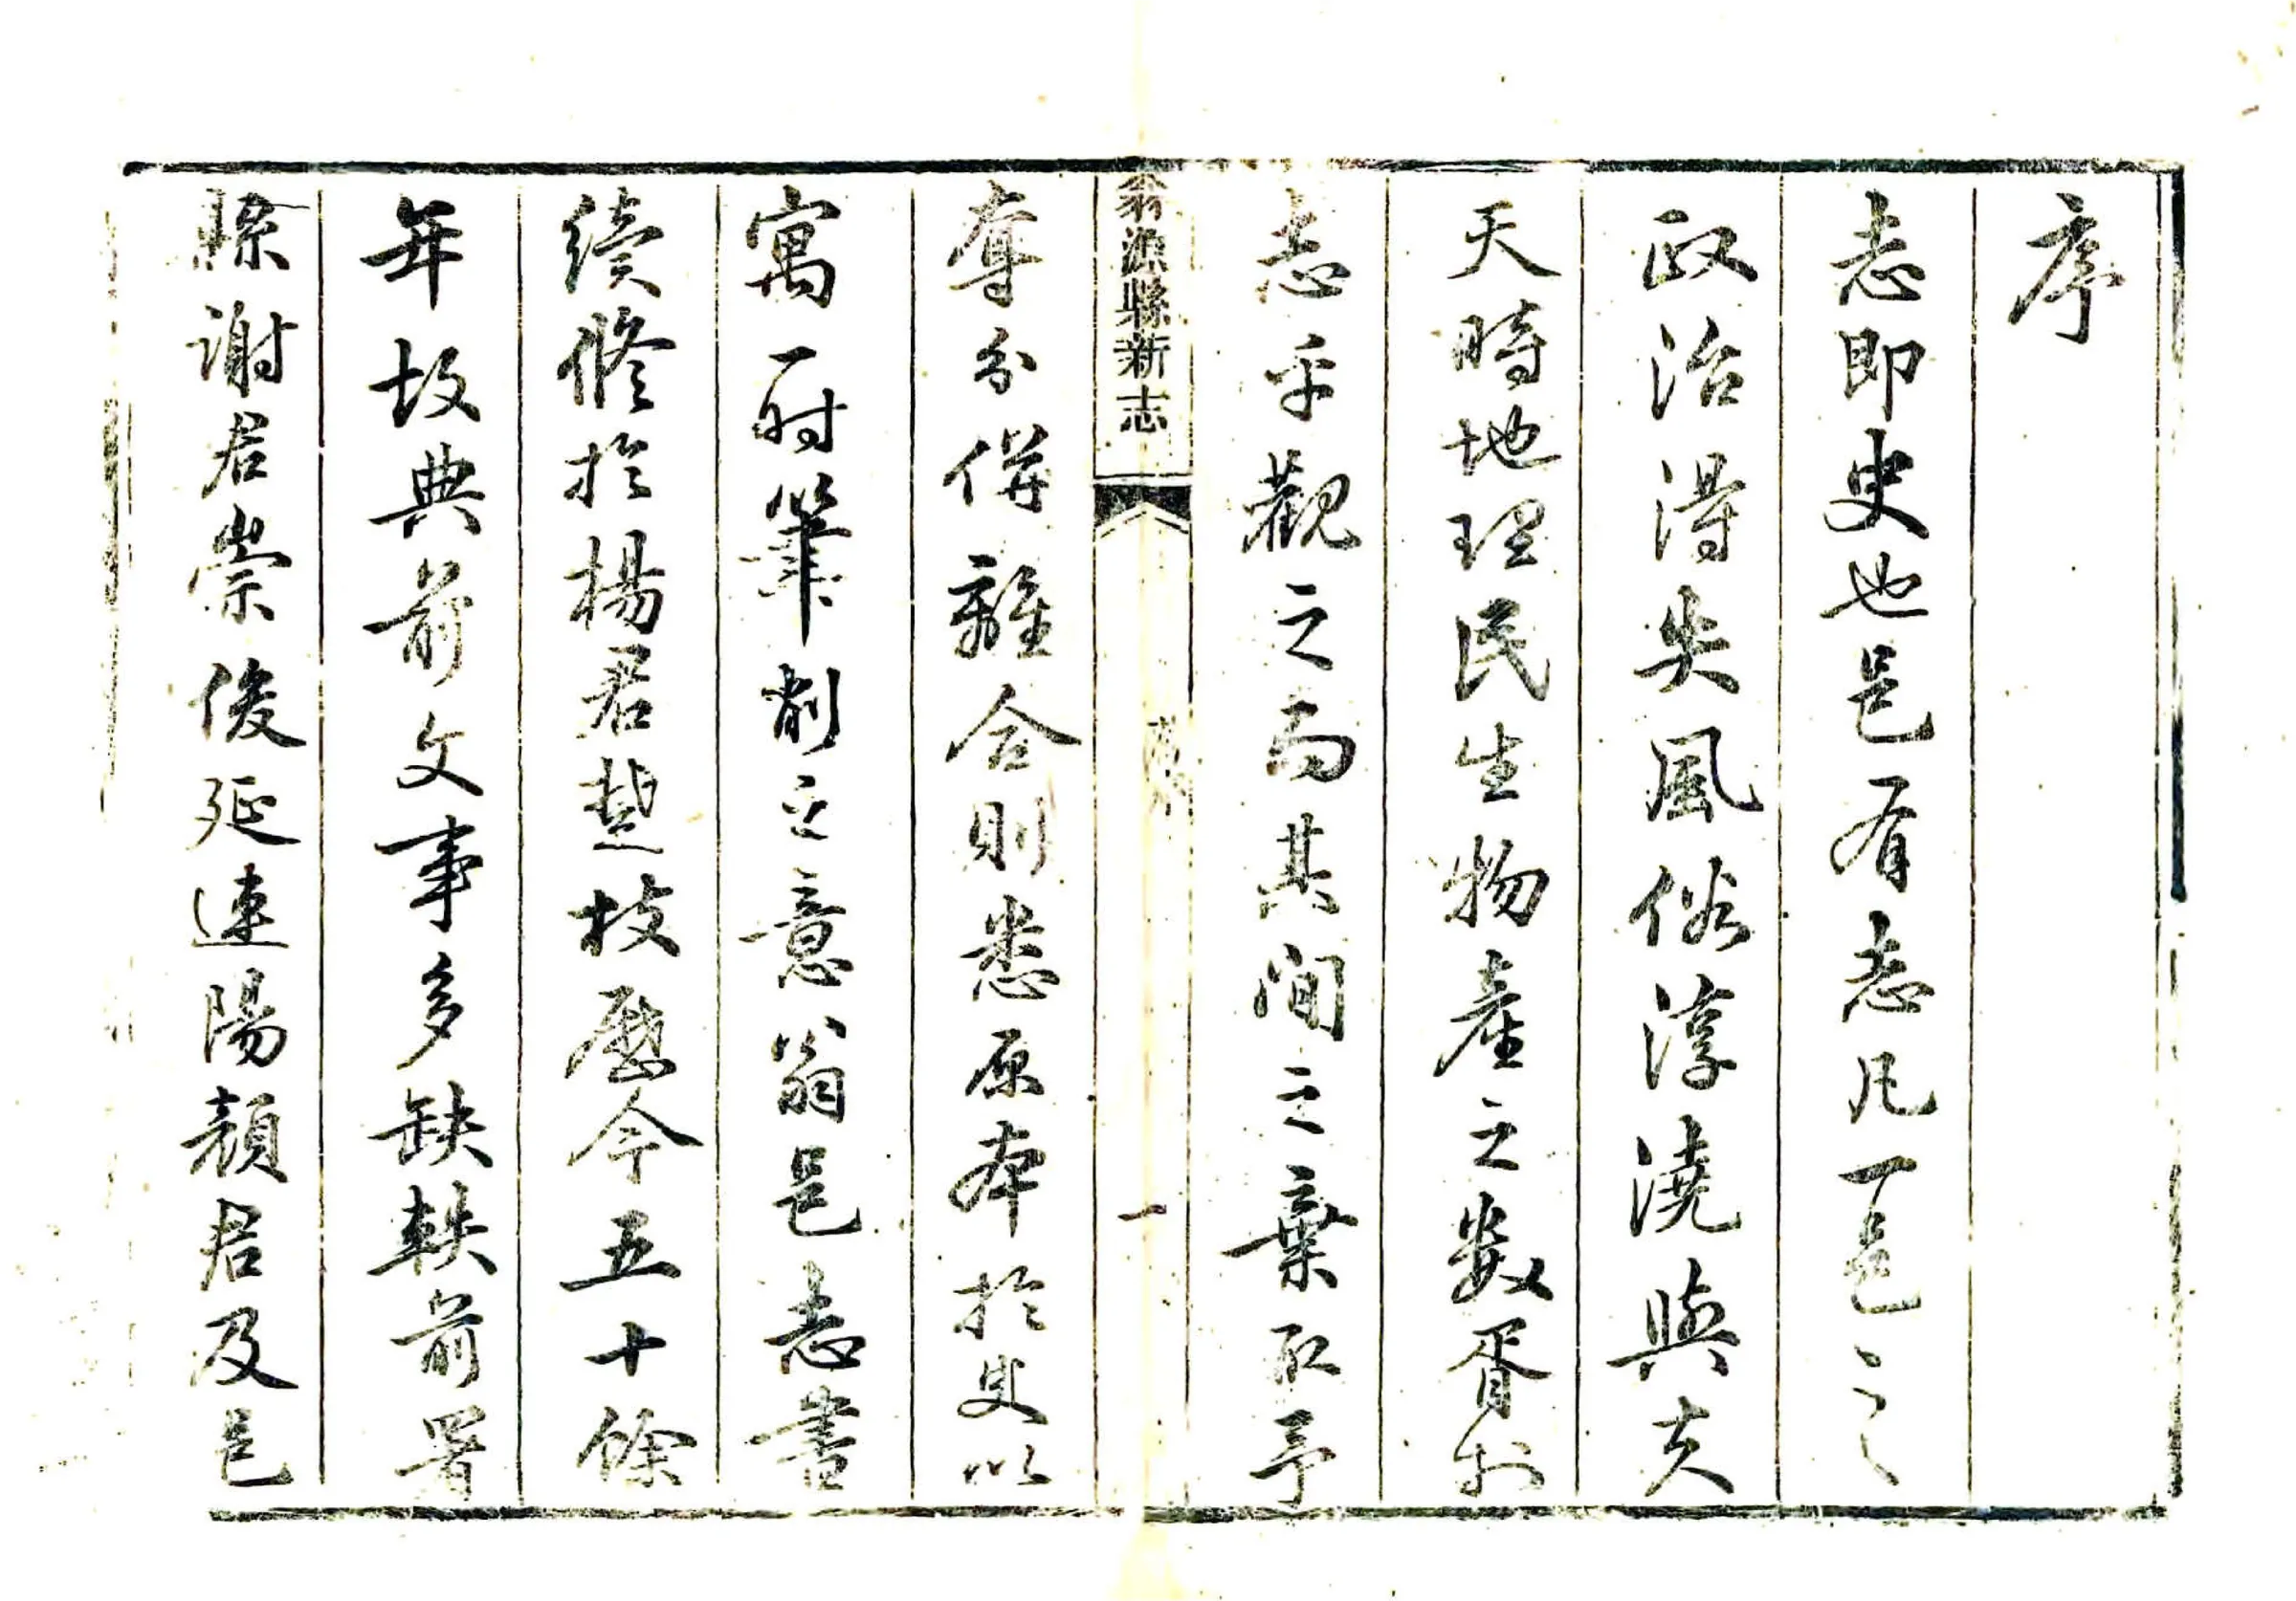 序
志即史也邑有志凡一邑之
政治得失風俗淳澆與夫
天時地理民生物產之數胥於
志乎觀之而其間之棄取予
翁源縣新志
一
奪分併離合則悉原本於史以
寓一時筆削之意翁邑志書
續修於楊君楚枝歷今五十餘
年故典前文事多缺軼前署
縣謝君崇俊延連陽顏君及邑